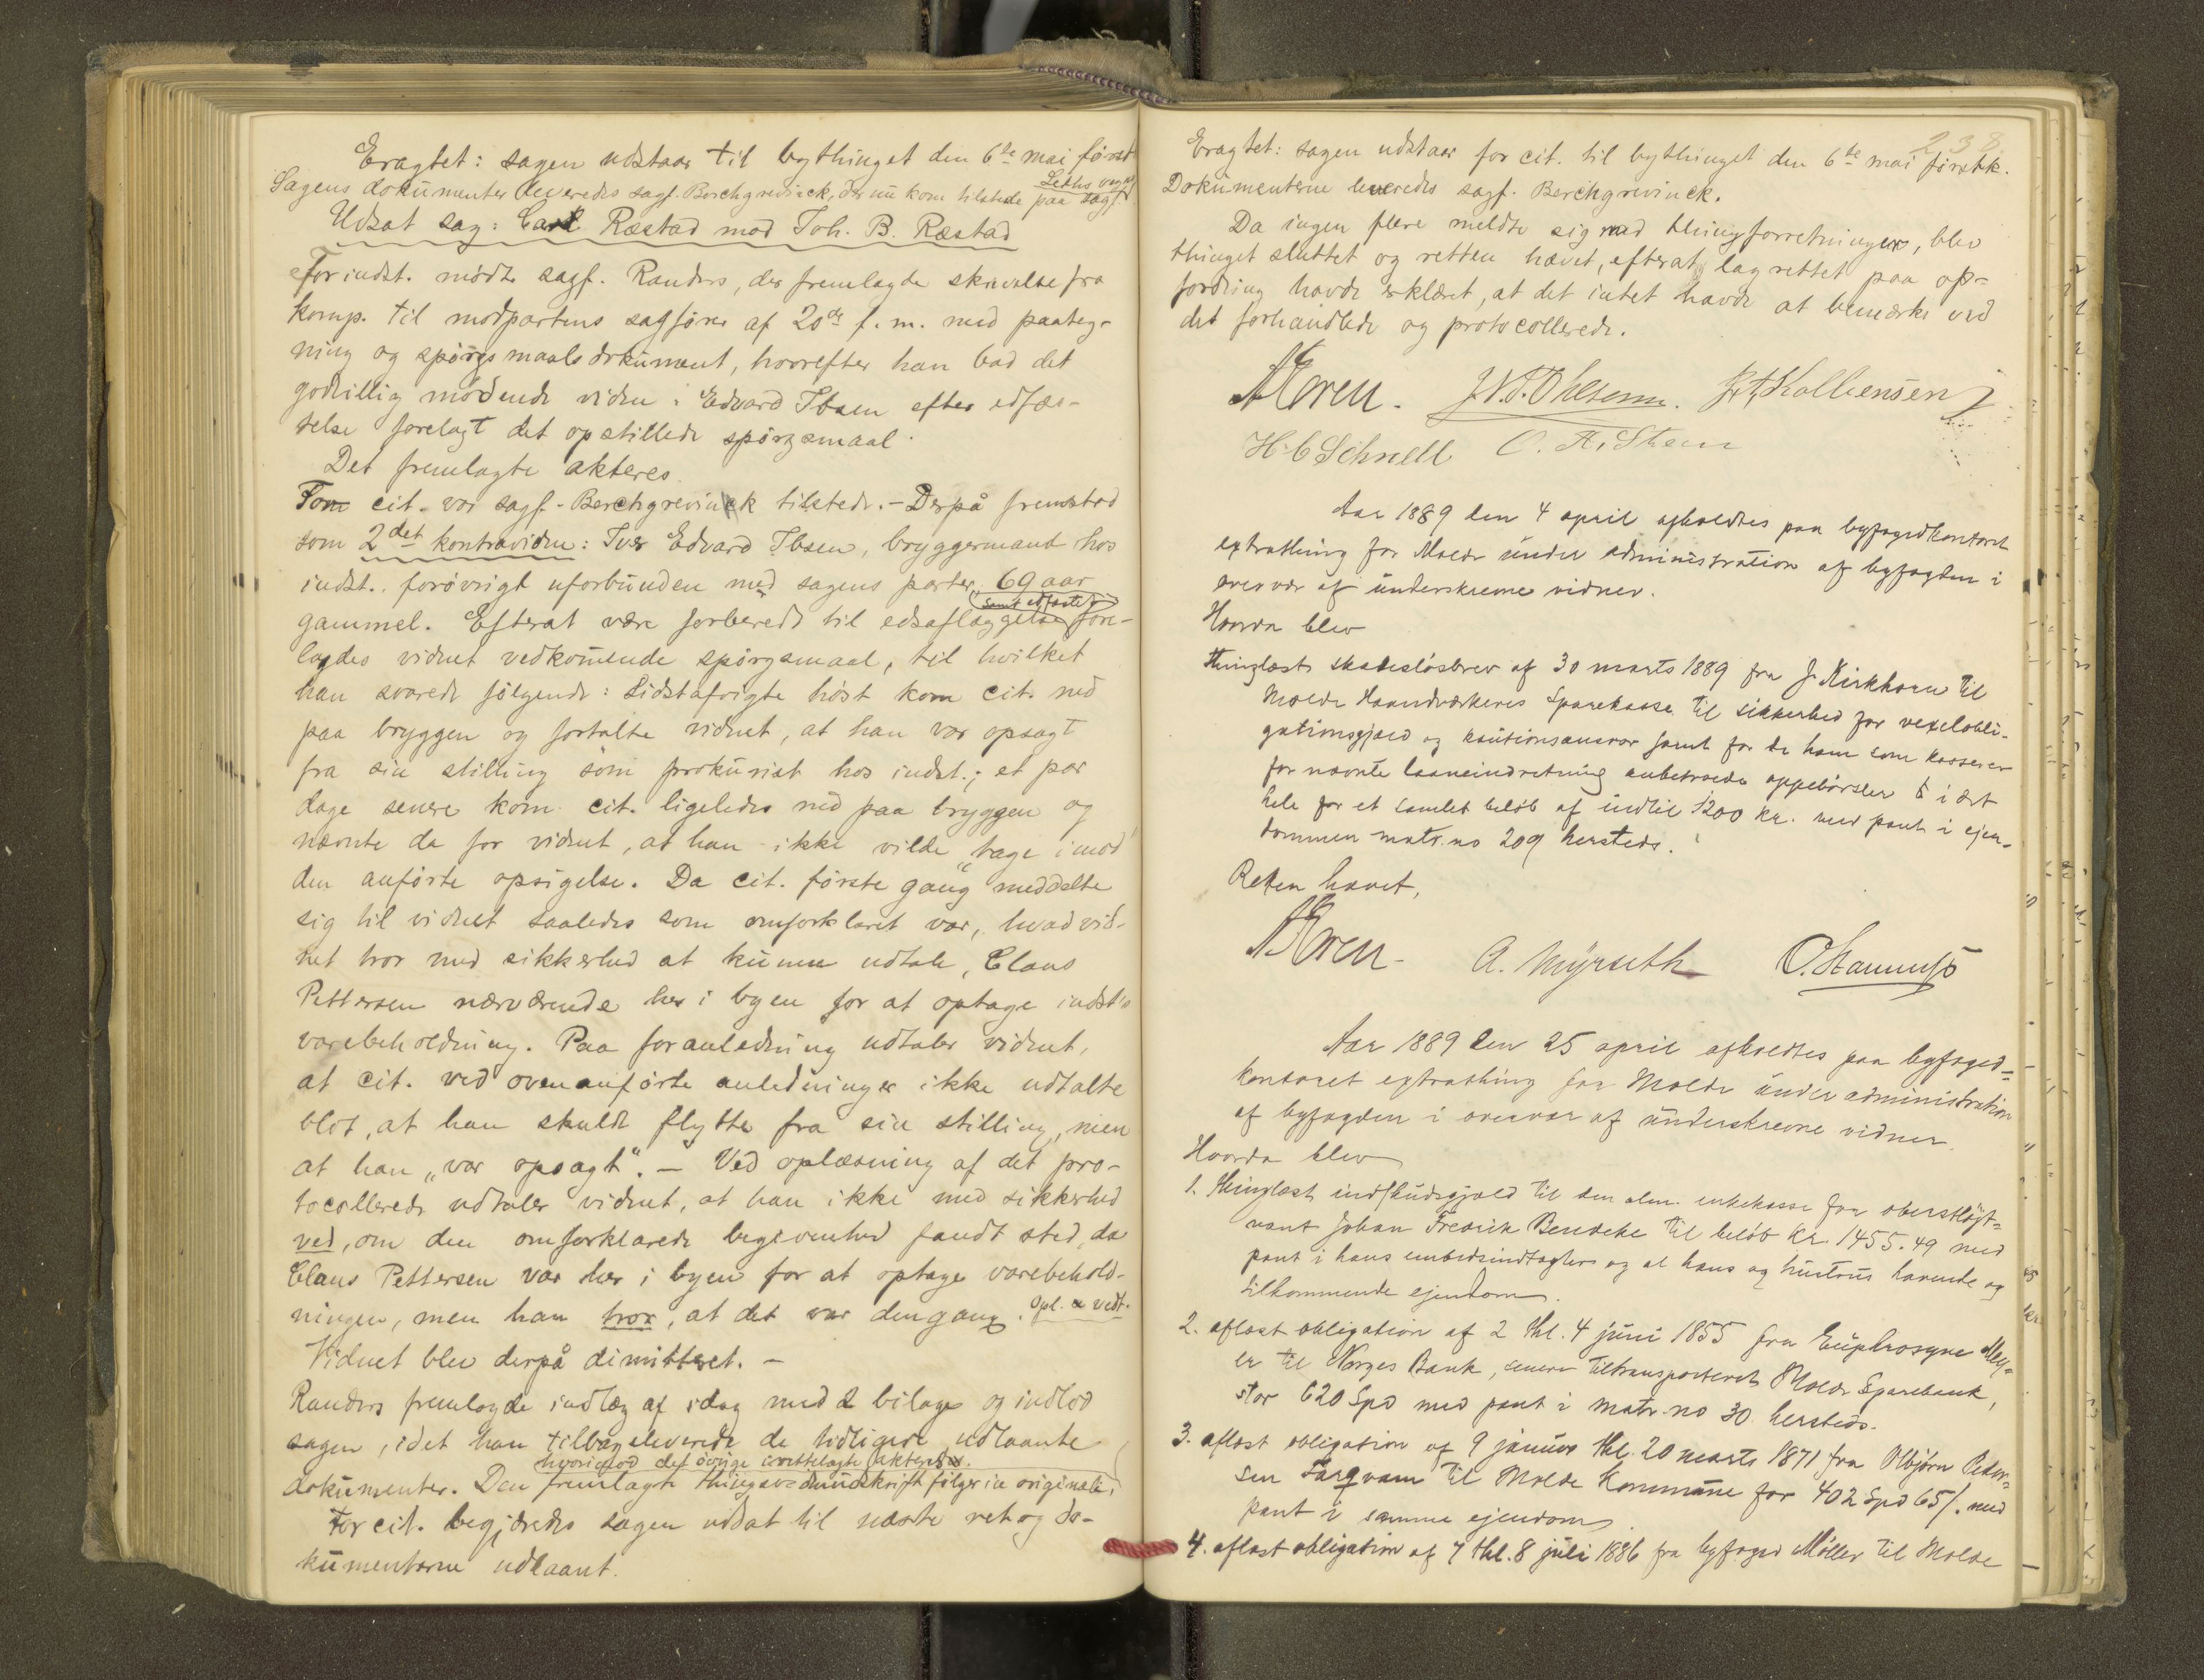 Eragtet: sagen udstaar til bythinget den 6te mai førstk.
Sagens dokumenter leveredes sagf. Berchgrevinck, der nu kom tilstede paa sagf. Leths vegne
Udsat sag: Carl Ræstad mod Joh. B. Ræstad
For indst. mødte sagf. Randers, der fremlagde skrivelse fra
komp. til modpartens sagfører af 20de f. m. med paateg-
ning og spørgsmaalsdokument, hvorefter han bad det
godvillig mødende vidne: Edvard Ibsen efter edfæs-
telse forelagt det opstillede spørgsmaal.
Det fremlagte akteres
For cit. var sagf. Berchgrevinck tilstede. – Derpå fremstod
som 2det kontravidne: Iver Edvard Ibsen, bryggermand hos
indst., forøvrigt uforbunden med sagens parter, 69 aar
gammel. Efterat være forberedt til edsaflæggelse (samt edfæstet) fore-
lagdes vidnet vedkommende spørgsmaal, til hvilket
han svarede følgende: Sidstafvigte høst kom cit. ned
paa bryggen og fortalte vidnet, at han var opsagt
fra sin stilling som prokurist hos indst.; et par
dage senere kom cit. ligeledes ned paa bryggen og
nævnte da for vidnet, at han ikke vilde „tage imod"
den anførte opsigelse. Da cit. første gang meddelte
sig til vidnet saaledes som omforklaret var, hvad vid-
net tror med sikkerhed at kunne udtale, Claus
Pettersen nærværende her i byen for at optage indst's
varebeholdning. Paa foranledning udtaler vidnet,
at cit. ved ovenanførte anledninger ikke udtalte
blot, at han skulde flytte fra sin stilling, men
at han „var opsagt". – Ved oplæsning af det pro-
tocollerede udtaler vidnet, at han ikke med sikkerhed
ved, om den omforklarede begivenhed fandt sted, da
Claus Pettersen var her i byen for at optage varebehold-
ningen, men han tror, at det var dengang. Opl. & vedt.
Vidnet blev derpå dimitteret. –
Randers fremlagde indlæg af idag med 2 bilage og indlod
sagen, idet han tilbageleverede de tidligere udlaante
dokumenter. Den fremlagte thingsvidneudskrift følger in originali,
hvorimod det øvrige irettelagte akteres.
For cit. begjæredes sagen udsat til næste ret og do-
kumenterne udlaant.
238
Eragtet: sagen udstaar for cit. til bythinget den 6te mai førstk.
Dokumenterne leveredes sagf. Berchgrevinck.
Da ingen flere meldte sig med thingforretninger, blev
thinget sluttet og retten hævet, efterat lagrettet paa op-
fordring havde erklæret, at det intet havde at bemærke ved
det forhandlede og protocollerede.
H. C. Schnell
Aar 1889 den 4 april afholdtes paa byfogedkontoret
extrathing for Molde under administration af byfogden i
overvær af underskrevne vidner.
Hvorda blev
thinglæst skadesløsbrev af 30 marts 1889 fra J. Kirkhorn til
Molde Haandværkeres Sparekasse til sikkerhed for vexelobli-
gationsgjæld og kautionsansvar samt for de ham som kasserer
for nævnte laaneindretning anbetroede oppebørsler i det
hele for et samlet beløb af indtil 1200 kr. med pant i ejen-
dommen matr. no 209 hersteds.
Retten hævet,
A. Myrseth
Aar 1889 den 25 april afholdtes paa byfoged-
kontoret extrathing for Molde under administration
af byfogden i overvær af underskrevne vidner
Hvorda blev
1. thinglæst indskudsgjæld til den alm. enkekasse for oberstløjt-
nant Johan Fredrik Bendeke til beløb kr. 1455.49 med
pant i hans embedsindtægter og al hans og hustrus havende og
tilkommende ejendom.
2. aflæst obligation af 2 thl. 4 juni 1855 fra Euphrosyne Mey-
er til Norges Bank, senere tiltransporteret Molde Sparebank,
stor 620 Spd med pant i matr. no 30 hersteds.
3. aflæst obligation af 9 januar thl. 20 marts 1871 fra Olbjørn Peder-
sen Farqvam til Molde Kommune for 402 Spd 65/. med
pant i samme ejendom
4. aflæst obligation af 7 thl. 8 juli 1886 fra byfoged Møller til Molde